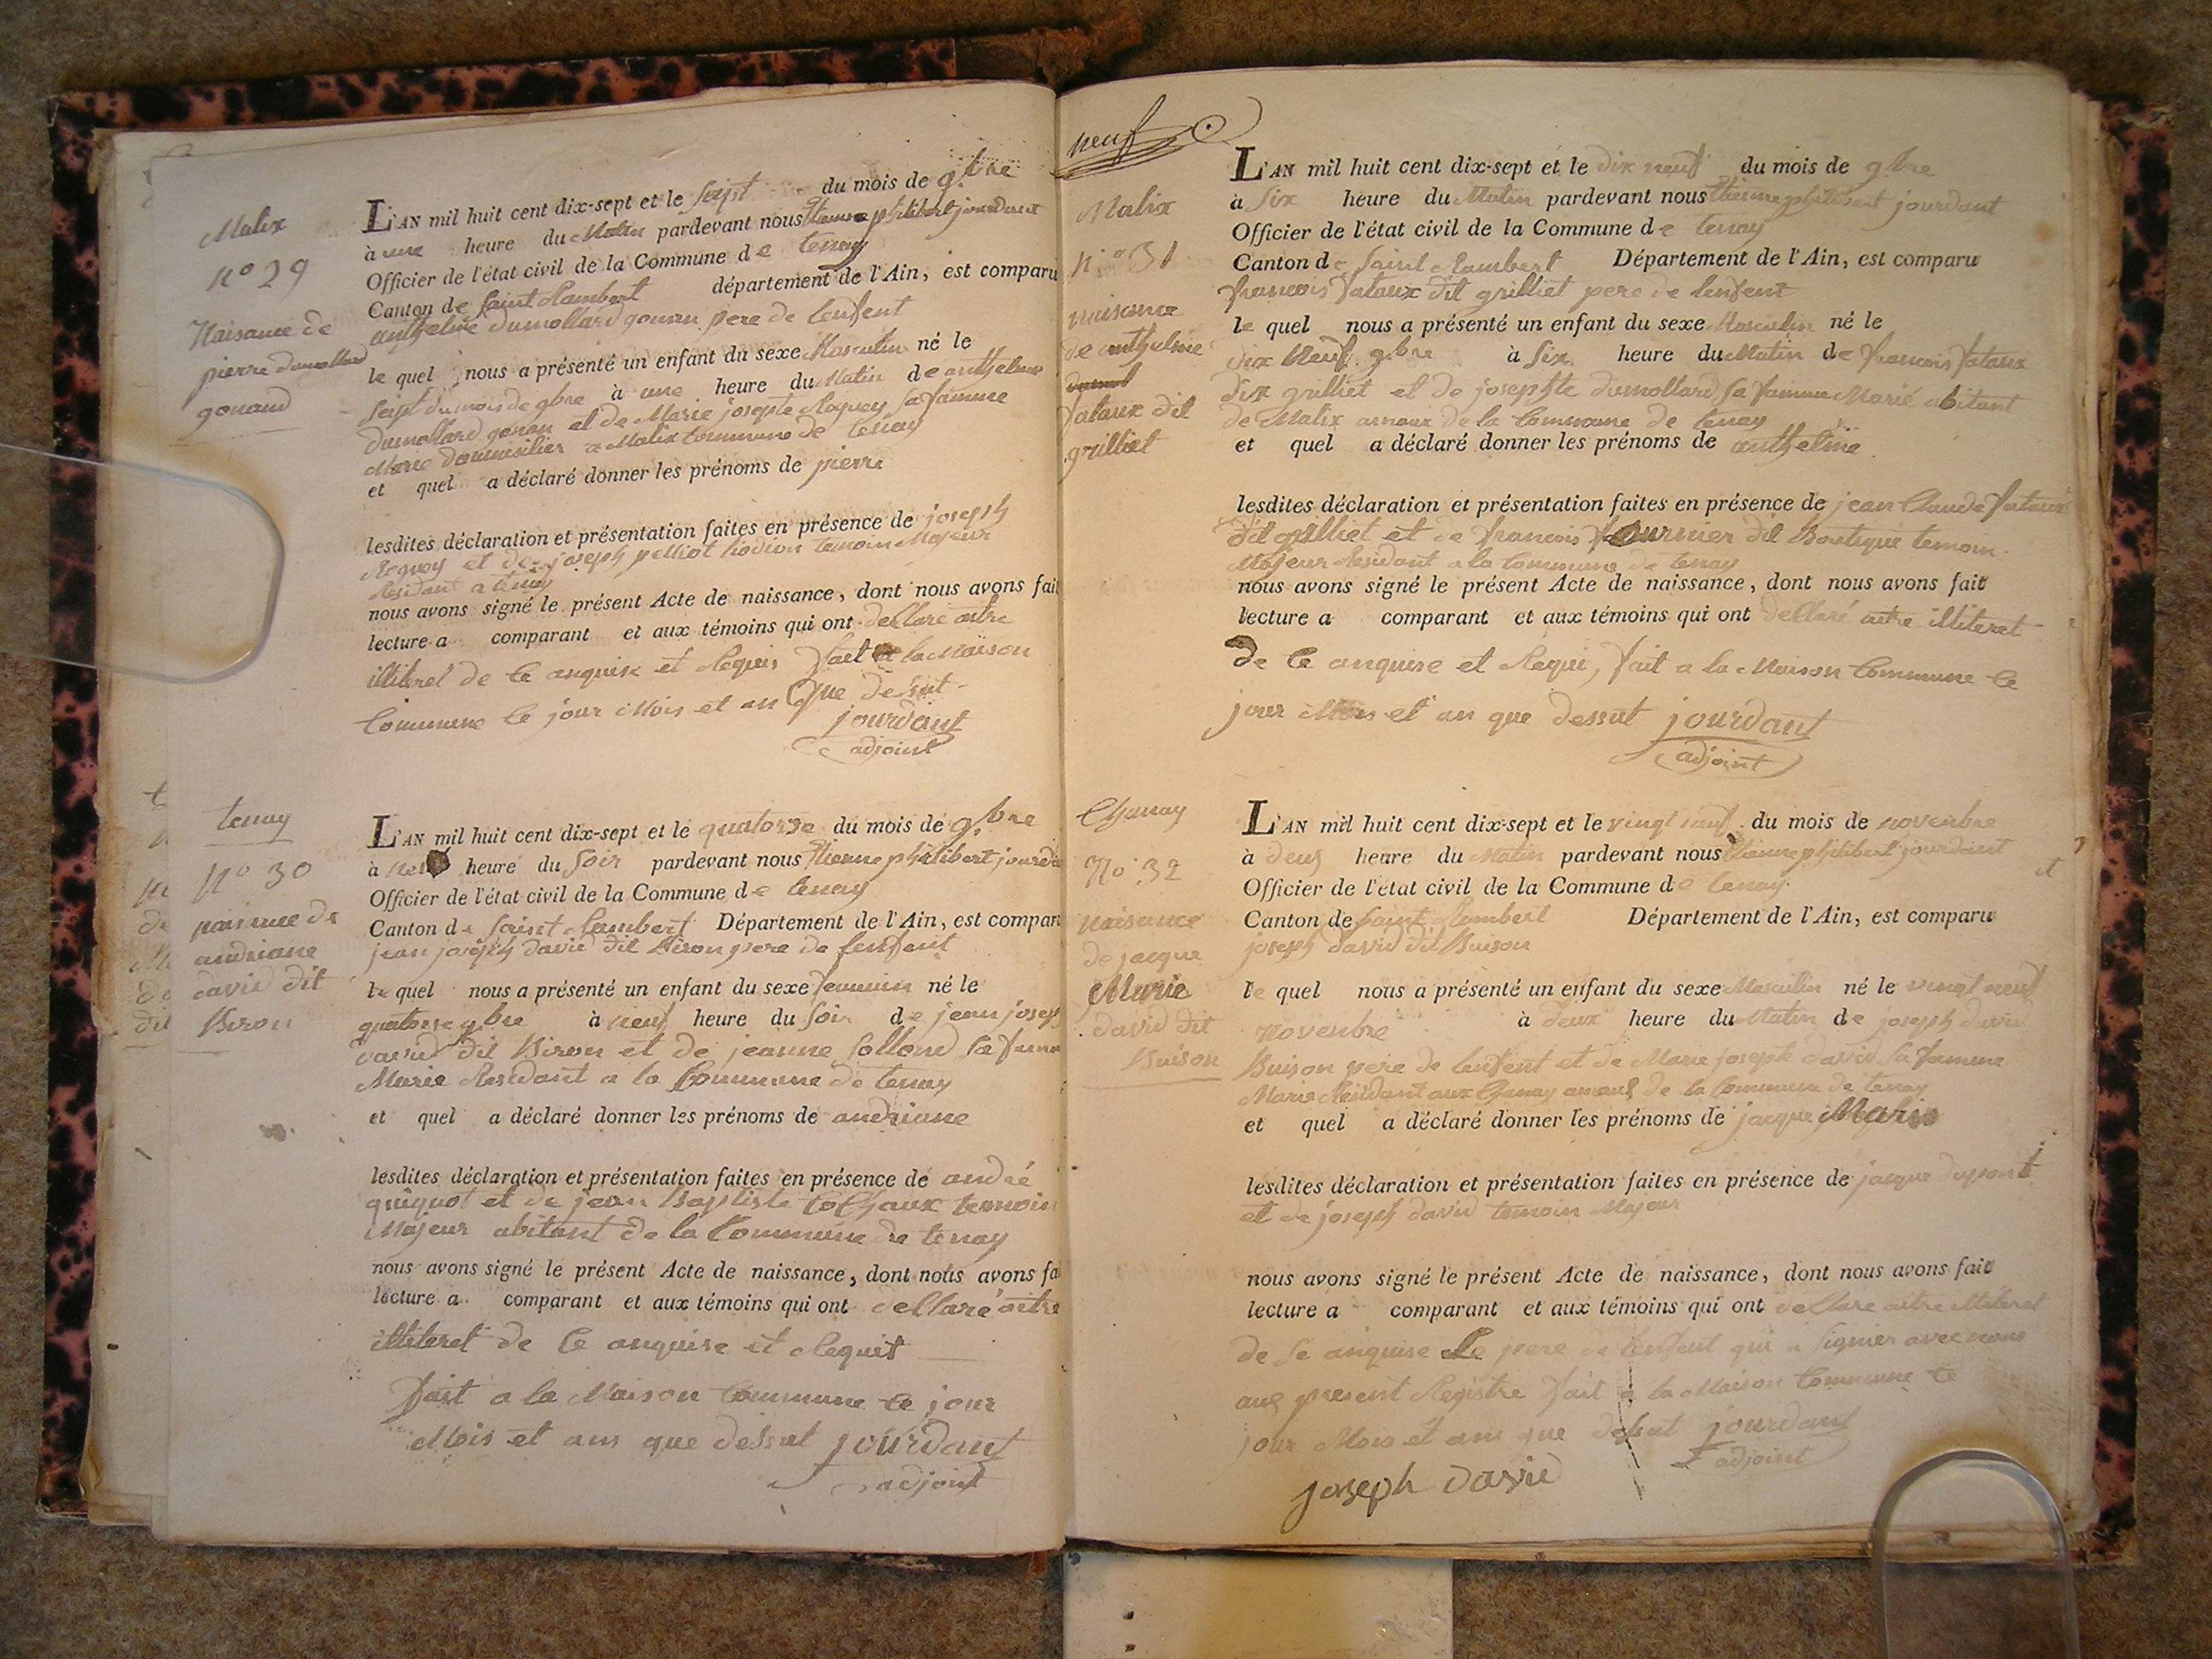 Malix
n° 29
Naisance de
pierre dumollard
gonand
L'AN mil huit cent dix-sept et le sept du mois de 9bre
à une heure du Matin pardevant nous Etienne philibert jourdant
Officier de l'état civil de la Commune de tenay
Canton de Saint Rambert département de l'Ain, est comparu
anthelme dumollard gonan pere de lenfent
le quel nous a présenté un enfant du sexe Masculin né le
sept du mois de 9bre à une heure du Matin de anthelme
dumollard gonan et de Marie josepte Reguey sa famme
Marie doumisilier a Malix Commune de tenay
et quel a déclaré donner les prénoms de pierre
lesdites déclaration et présentation faites en présence de joseph
Reguey et de joseph pelliot temoin Majeur
Residant a tenay
nous avons signé le présent Acte de naissance, dont nous avons fait
lecture a comparant et aux témoins qui ont dellaré aitre
illiteret de ce anquise et Requis fait a la Maison
Commune le jour Mois et an que dessut
jourdant
adjoint
tenay
N° 30
naisance de
andriane
david dit
Biron
L'AN mil huit cent dix-sept et le quatorse du mois de 9bre
à neuf heure du Soir pardevant nous Etienne philibert jourda
Officier de l'état civil de la Commune de tenay
Canton de Saint Rambert Département de l'Ain, est compar
jean joseph david dit Biron pere de lenfent
le quel nous a présenté un enfant du sexe feminin né le
quatorse 9bre à neuf heure du Soir de jean joseph
david dit Biron et de jeanne Collond sa famme
Marie Residant a la Commune de tenay
et quel a déclaré donner les prénoms de andriane
lesdites déclaration et présentation faites en présence de andré
quiquot et de jean Baptiste Cochaux temoin
Majeur abitant de la Commune de tenay
nous avons signé le présent Acte de naissance, dont nous avons fa
lecture a comparant et aux témoins qui ont dellaré aitre
illiteret de ce anquise et Requit
fait a la Maison Commune le jour
Mois et ans que dessut jourdant
adjoint
neuf
Malix
n° 31
naisance
de anthelme
fataux dit
grilliet
L'AN mil huit cent dix-sept et le dix neuf du mois de 9bre
à Six heure du Matin pardevant nous Etienne philibert jourdant
Officier de l'état civil de la Commune de tenay
Canton de Saint Rambert Département de l'Ain, est comparu
francois fataux dit grilliet pere de lenfent
le quel nous a présenté un enfant du sexe Masculin né le
dix Neuf 9bre à Six heure du Matin de francois fataux
dit grilliet et de josephte dumollard sa famme Marié abitant
de Malix amaux de la Commune de tenay
et quel a déclaré donner les prénoms de anthelme
lesdites déclaration et présentation faites en présence de jean Claude fataux
dit grilliet et de francois fournier dit Boutique temoin
Majeur Residant a la Commune de tenay
nous avons signé le présent Acte de naissance, dont nous avons fait
lecture a comparant et aux témoins qui ont dellaré aitre illiteret
de ce anquise et Requi, fait a la Maison Commune le
jour Mois et an que dessut jourdant
adjoint
Chanay
N° 32
naisance
de jacque
Marie
david dit
Buison
L'AN mil huit cent dix-sept et le vingt neuf du mois de novenbre
à deux heure du Matin pardevant nous Etienne philibert jourdant
Officier de l'état civil de la Commune de tenay
Canton de Saint Rambert Département de l'Ain, est comparu
joseph david dit Buison
le quel nous a présenté un enfant du sexe Masculin né le vingt neuf
novenbre à deux heure du Matin de joseph david
Buison pere de lenfent et de Marie josepte david sa famme
Marie Residant aux Chanay amaux de la Commune de tenay
et quel a déclaré donner les prénoms de jacque Marie
lesdites déclaration et présentation faites en présence de jacque dupont
et de joseph david temoin Majeur
nous avons signé le présent Acte de naissance, dont nous avons fait
lecture a comparant et aux témoins qui ont dellaré aitre illiteret
de se anquise Le pere de lenfent qui a Signier avec nous
aux present Registre fait a la Maison Commune le
jour Mois et ans que dessut jourdant
adjoint
joseph david